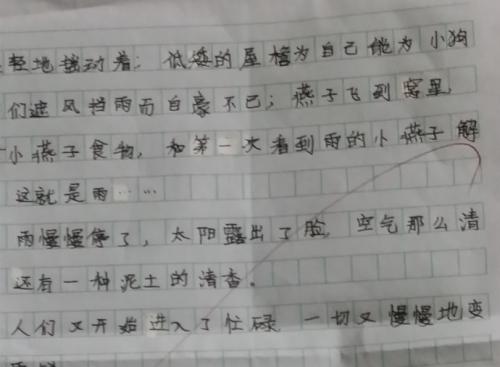 轻地摆动着；低矮的屋檐为自己能为小狗
们遮风挡雨而自豪不已；燕子飞到窝里，
小燕子食物，和第一次看到雨的小燕子解
这就是雨……
雨慢慢停了，太阳露出了脸，空气那么清
还有一种泥土的清香。
人们又开始进入了忙碌，一切又慢慢地变